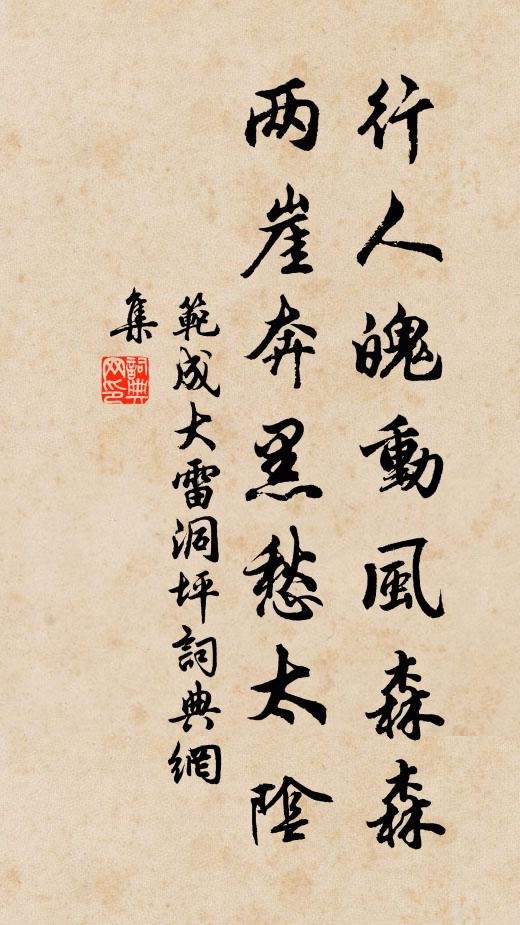 行人魄動風森森
两崖奔黑愁太陰
範成大雷洞坪詞典網
集
詞典网印